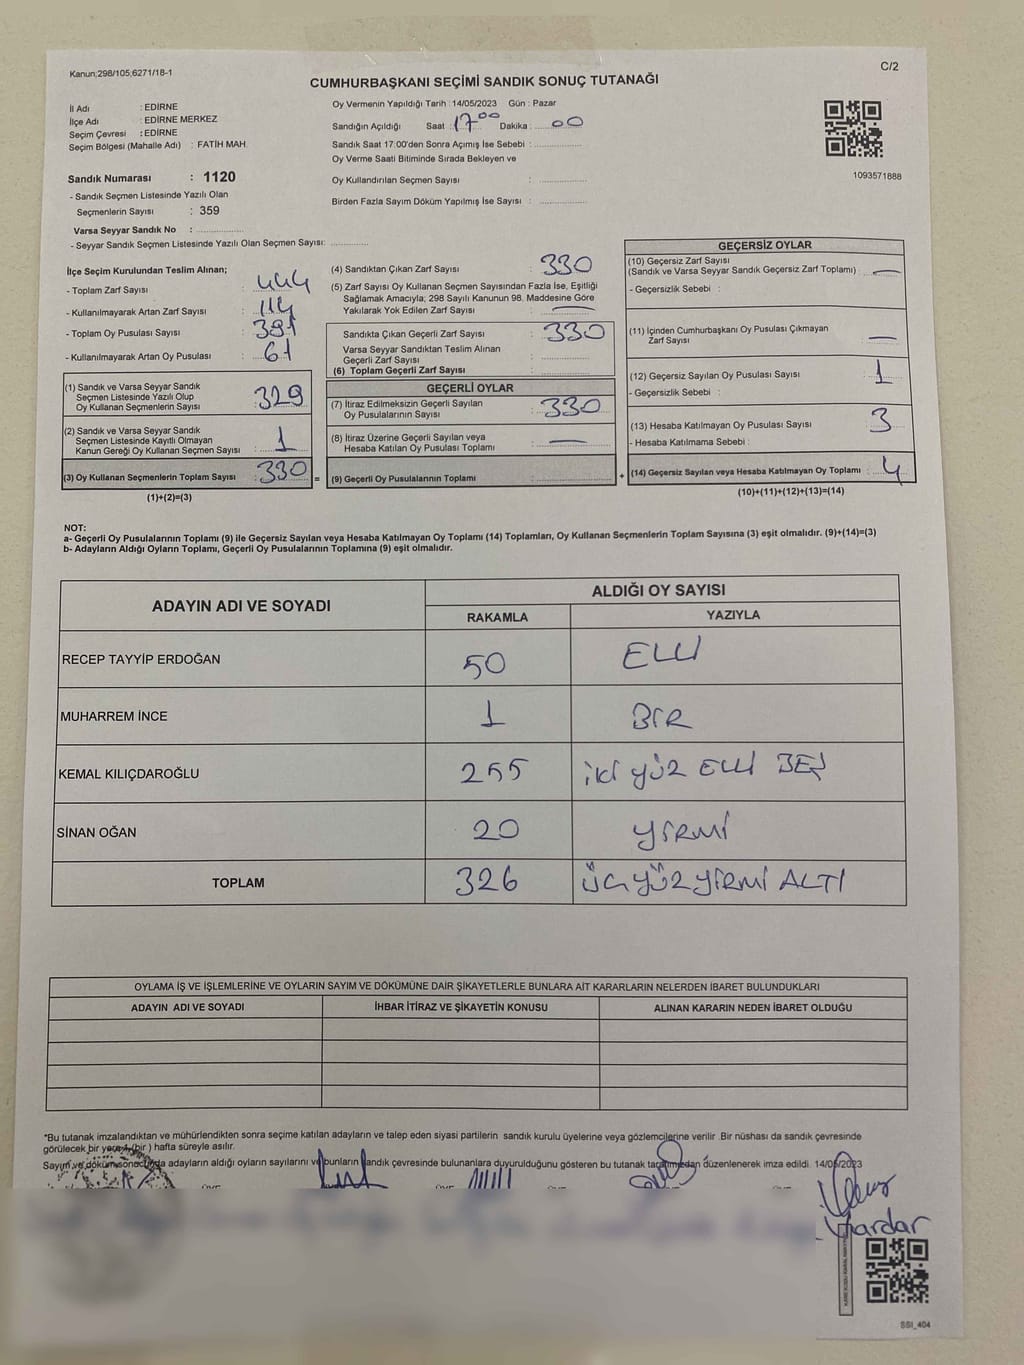 Kanun;298/105;6271/18-1
C/2
CUMHURBAŞKANI SEÇİMİ SANDIK SONUÇ TUTANAĞI
İl Adı : EDİRNE
İlçe Adı : EDİRNE MERKEZ
Seçim Çevresi : EDİRNE
Seçim Bölgesi (Mahalle Adı) : FATİH MAH.
Sandık Numarası : 1120
- Sandık Seçmen Listesinde Yazılı Olan
Seçmenlerin Sayısı : 359
Varsa Seyyar Sandık No :
- Seyyar Sandık Seçmen Listesinde Yazılı Olan Seçmen Sayısı:
Oy Vermenin Yapıldığı Tarih : 14/05/2023 Gün : Pazar
Sandığın Açıldığı Saat : 17⁰⁰ Dakika : 00
Sandık Saat 17:00'den Sonra Açımış İse Sebebi :
Oy Verme Saati Bitiminde Sırada Bekleyen ve
Oy Kullandırılan Seçmen Sayısı :
Birden Fazla Sayım Döküm Yapılmış İse Sayısı :
1093571888
İlçe Seçim Kurulundan Teslim Alınan;
- Toplam Zarf Sayısı : 444
- Kullanılmayarak Artan Zarf Sayısı : 114
- Toplam Oy Pusulası Sayısı : 391
- Kullanılmayarak Artan Oy Pusulası : 61
(1) Sandık ve Varsa Seyyar Sandık
Seçmen Listesinde Yazılı Olup
Oy Kullanan Seçmenlerin Sayısı : 329
(2) Sandık ve Varsa Seyyar Sandık
Seçmen Listesinde Kayıtlı Olmayan
Kanun Gereği Oy Kullanan Seçmen Sayısı : 1
(3) Oy Kullanan Seçmenlerin Toplam Sayısı : 330
(1)+(2)=(3)
(4) Sandıktan Çıkan Zarf Sayısı : 330
(5) Zarf Sayısı Oy Kullanan Seçmen Sayısından Fazla İse, Eşitliği
Sağlamak Amacıyla; 298 Sayılı Kanunun 98. Maddesine Göre
Yakılarak Yok Edilen Zarf Sayısı : —
Sandıkta Çıkan Geçerli Zarf Sayısı : 330
Varsa Seyyar Sandıktan Teslim Alınan
Geçerli Zarf Sayısı :
(6) Toplam Geçerli Zarf Sayısı :
GEÇERLİ OYLAR
(7) İtiraz Edilmeksizin Geçerli Sayılan
Oy Pusulalarının Sayısı : 330
(8) İtiraz Üzerine Geçerli Sayılan veya
Hesaba Katılan Oy Pusulası Toplamı : —
= (9) Geçerli Oy Pusulalarının Toplamı :
GEÇERSİZ OYLAR
(10) Geçersiz Zarf Sayısı
(Sandık ve Varsa Seyyar Sandık Geçersiz Zarf Toplamı) : —
- Geçersizlik Sebebi :
(11) İçinden Cumhurbaşkanı Oy Pusulası Çıkmayan
Zarf Sayısı : —
(12) Geçersiz Sayılan Oy Pusulası Sayısı : 1
- Geçersizlik Sebebi :
(13) Hesaba Katılmayan Oy Pusulası Sayısı : 3
- Hesaba Katılmama Sebebi :
+ (14) Geçersiz Sayılan veya Hesaba Katılmayan Oy Toplamı : 4
(10)+(11)+(12)+(13)=(14)
NOT:
a- Geçerli Oy Pusulalarının Toplamı (9) ile Geçersiz Sayılan veya Hesaba Katılmayan Oy Toplamı (14) Toplamları, Oy Kullanan Seçmenlerin Toplam Sayısına (3) eşit olmalıdır. (9)+(14)=(3)
b- Adayların Aldığı Oyların Toplamı, Geçerli Oy Pusulalarının Toplamına (9) eşit olmalıdır.
ADAYIN ADI VE SOYADI
ALDIĞI OY SAYISI
RAKAMLA YAZIYLA
RECEP TAYYİP ERDOĞAN 50 ELLİ
MUHARREM İNCE 1 BİR
KEMAL KILIÇDAROĞLU 255 İKİ YÜZ ELLİ BEŞ
SİNAN OĞAN 20 YİRMİ
TOPLAM 326 ÜÇ YÜZ YİRMİ ALTI
OYLAMA İŞ VE İŞLEMLERİNE VE OYLARIN SAYIM VE DÖKÜMÜNE DAİR ŞİKAYETLERLE BUNLARA AİT KARARLARIN NELERDEN İBARET BULUNDUKLARI
ADAYIN ADI VE SOYADI İHBAR İTİRAZ VE ŞİKAYETİN KONUSU ALINAN KARARIN NEDEN İBARET OLDUĞU
*Bu tutanak imzalandıktan ve mühürlendikten sonra seçime katılan adayların ve talep eden siyasi partilerin sandık kurulu üyelerine veya gözlemcilerine verilir .Bir nüshası da sandık çevresinde
görülecek bir yere 1 (bir ) hafta süreyle asılır.
Sayım ve döküm sonucunda adayların aldığı oyların sayılarını ve bunların sandık çevresinde bulunanlara duyurulduğunu gösteren bu tutanak tarafımızdan düzenlenerek imza edildi. 14/05/2023
SSI_404